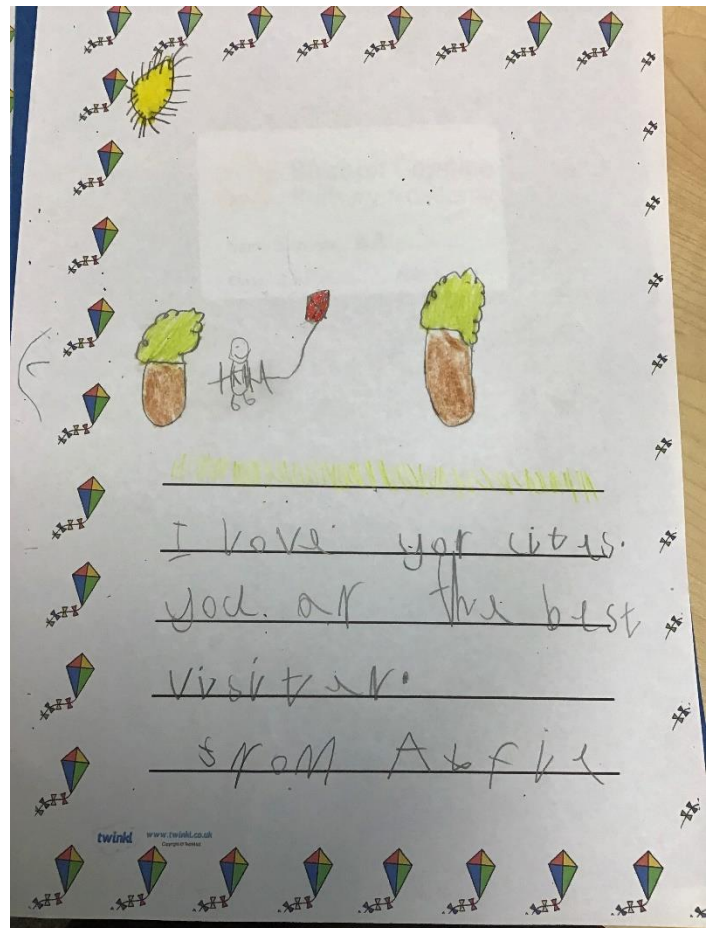 I love yor cites.
you. ar the best
visiter.
from Alfie
twinkl www.twinkl.co.uk